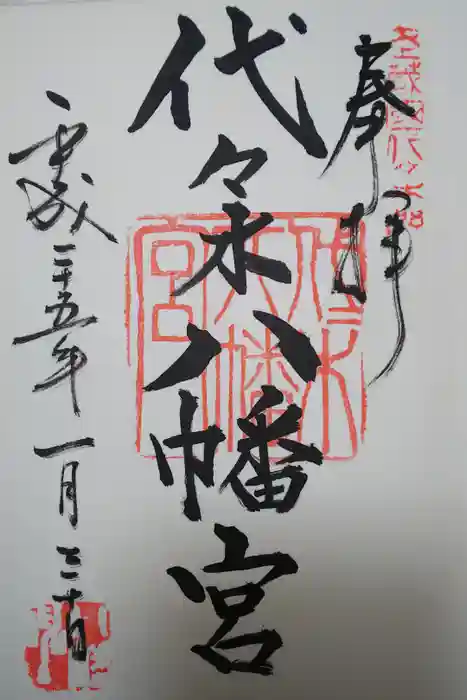 奉拝
代々木八幡宮
平成二十五年一月三十日